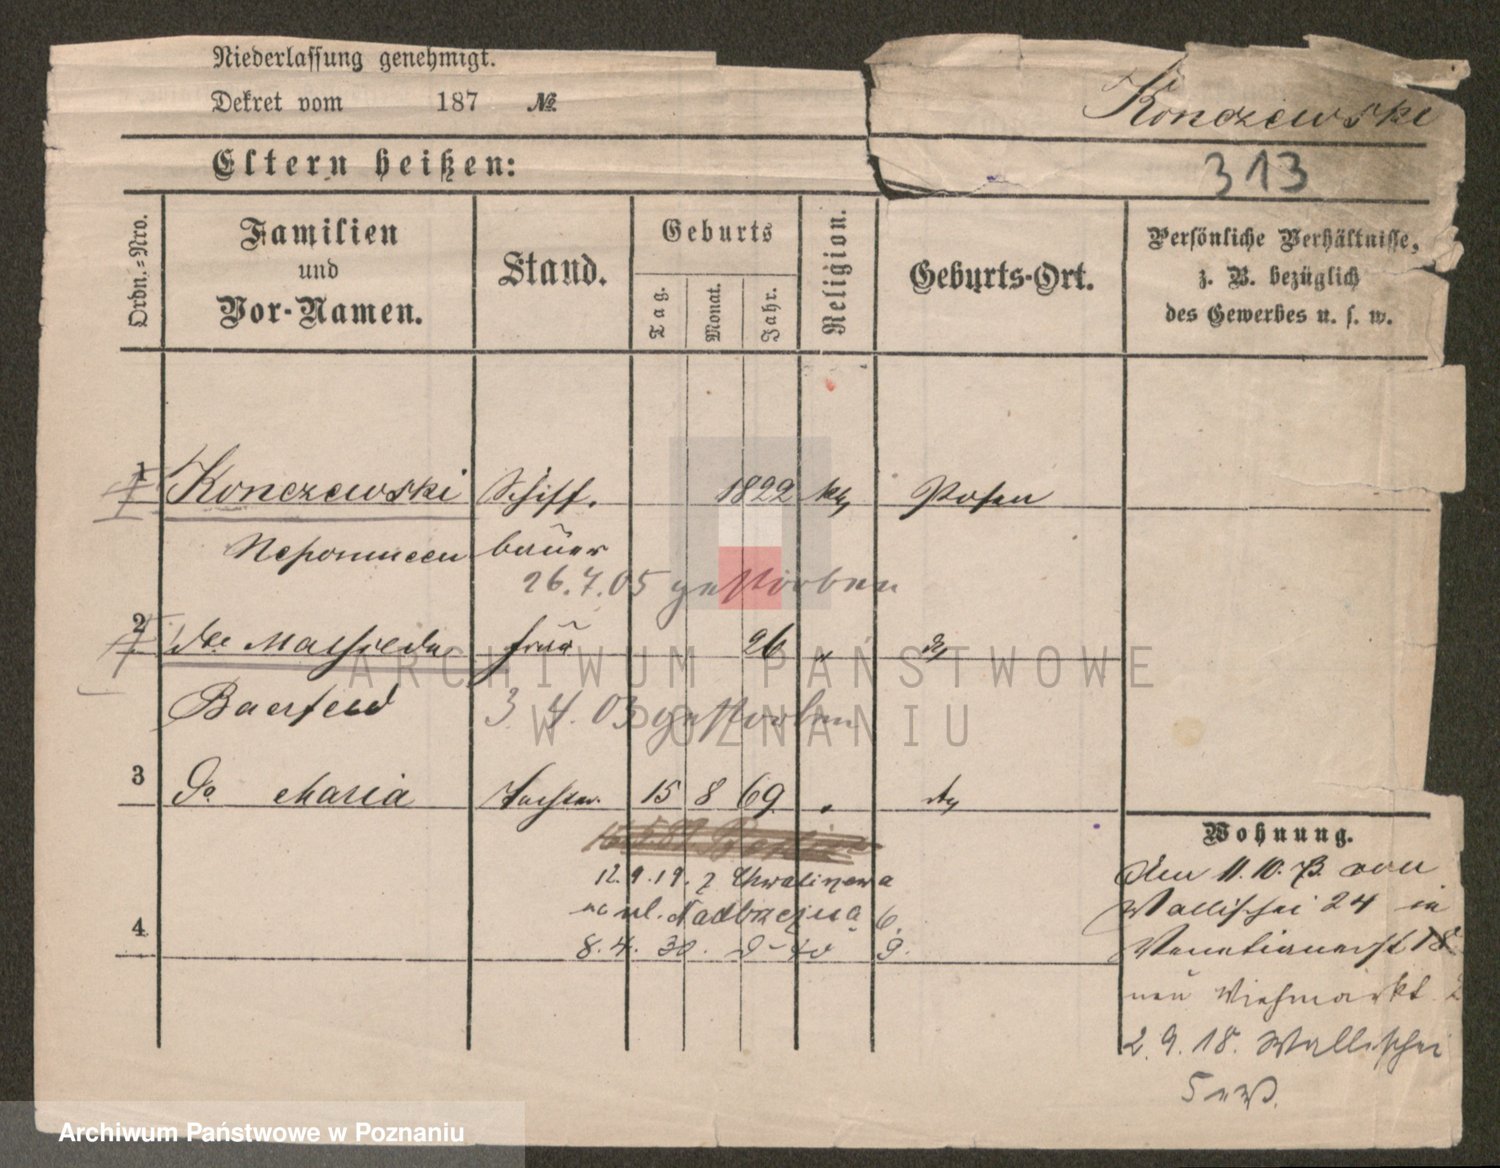 Niederlassung genehmigt.
Dekret vom 187 №
Konczewski
Eltern heißen:
313
Ordn.=Nro.
Familien
und
Vor-Namen.
Stand.
Geburts
Tag.
Monat.
Jahr.
Religion.
Geburts-Ort.
Persönliche Verhältnisse,
z. B. bezüglich
des Gewerbes u. s. w.
1 Konczewski Schiff. 1822 kth Posen
Nepomucen bauer
26.7.05 gestorben
2 Frau 26 "
Baerfeld 3. 4. 03 gestorben
3 do Maria Tochter 15 8 69 "
12.9.19. z Chwaliszewa
na ul. Nadbrzeżna 6.
4 8.4.30.
Wohnung.
Am 11.10. von
Wallischei 24 in
Venetianerst 18
neu Viehmarkt
2.9.18. Wallischei
5
ARCHIWUM PAŃSTWOWE
W POZNANIU
Archiwum Państwowe w Poznaniu